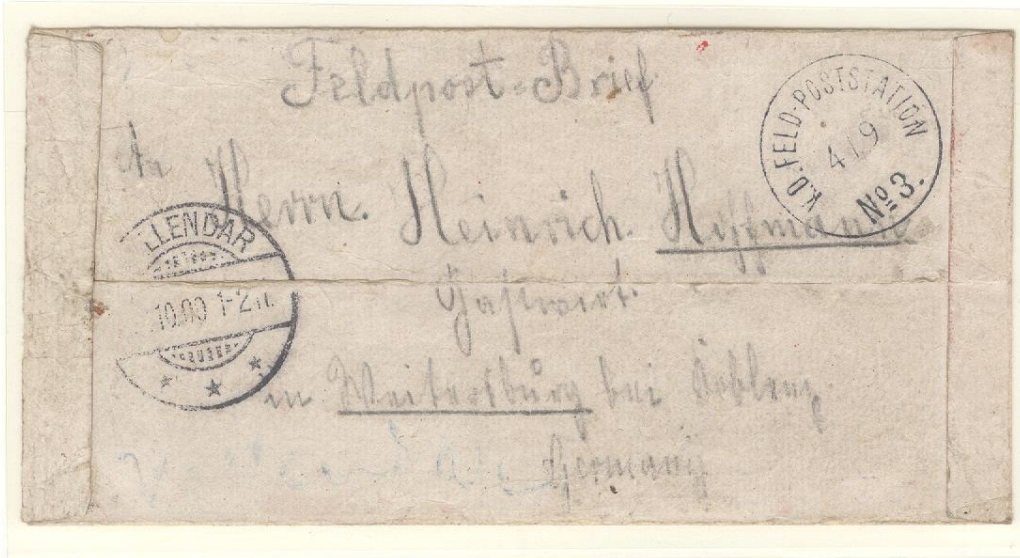 Feldpost-Brief
K.D. FELD-POSTSTATION
4 1.9
No 3.
An
Herrn. Heinrich. Hoffmann
LLENDAR
.10.00 1-2 N.
Gastwirt.
in Weitersburg bei Coblenz
Germany